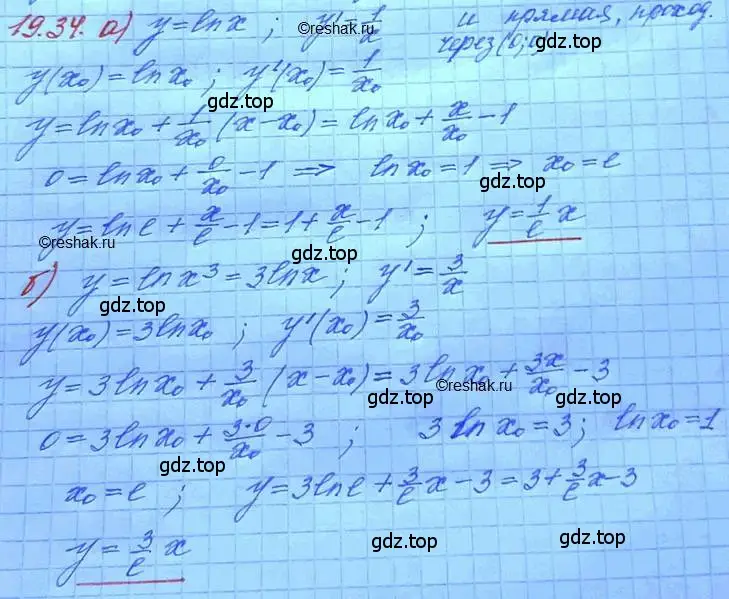 19.34. а) y = ln x ; y' = 1/x и прямая, проход. через (0;0)
©reshak.ru
y(x₀) = ln x₀ ; y'(x₀) = 1/x₀
gdz.top gdz.top
y = ln x₀ + 1/x₀ (x - x₀) = ln x₀ + x/x₀ - 1
0 = ln x₀ + 0/x₀ - 1 ⇒ ln x₀ = 1 ⇒ x₀ = e
gdz.top gdz.top
y = ln e + x/e - 1 = 1 + x/e - 1 ; y = 1/e x
©reshak.ru gdz.top
б) y = ln x³ = 3 ln x ; y' = 3/x
gdz.top gdz.top
y(x₀) = 3 ln x₀ ; y'(x₀) = 3/x₀
gdz.top
y = 3 ln x₀ + 3/x₀ (x - x₀) = 3 ln x₀ + 3x/x₀ - 3
©reshak.ru
gdz.top gdz.top gdz.top
0 = 3 ln x₀ + 3·0/x₀ - 3 ; 3 ln x₀ = 3 ; ln x₀ = 1
gdz.top
x₀ = e ; y = 3 ln e + 3/e x - 3 = 3 + 3/e x - 3
y = 3/e x
gdz.top gdz.top
©reshak.ru